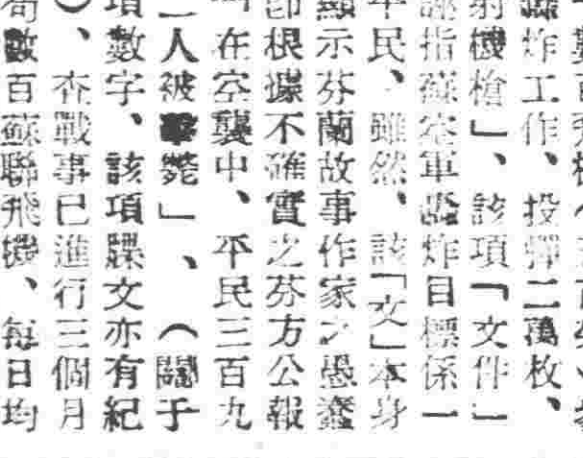 轟炸工作、投彈二萬枚、
射機槍」、該項「文件」
誣指蘇空軍轟炸目標係一
平民、雖然、該「文」本身
顯示芬蘭故事作家之愚蠢
即根據不確實之芬方公報
在空襲中、平民三百九
一人被擊斃」、(關于
項數字、該項牒文亦有紀
)、查戰事已進行三個月
苟數百蘇聯飛機、每日均